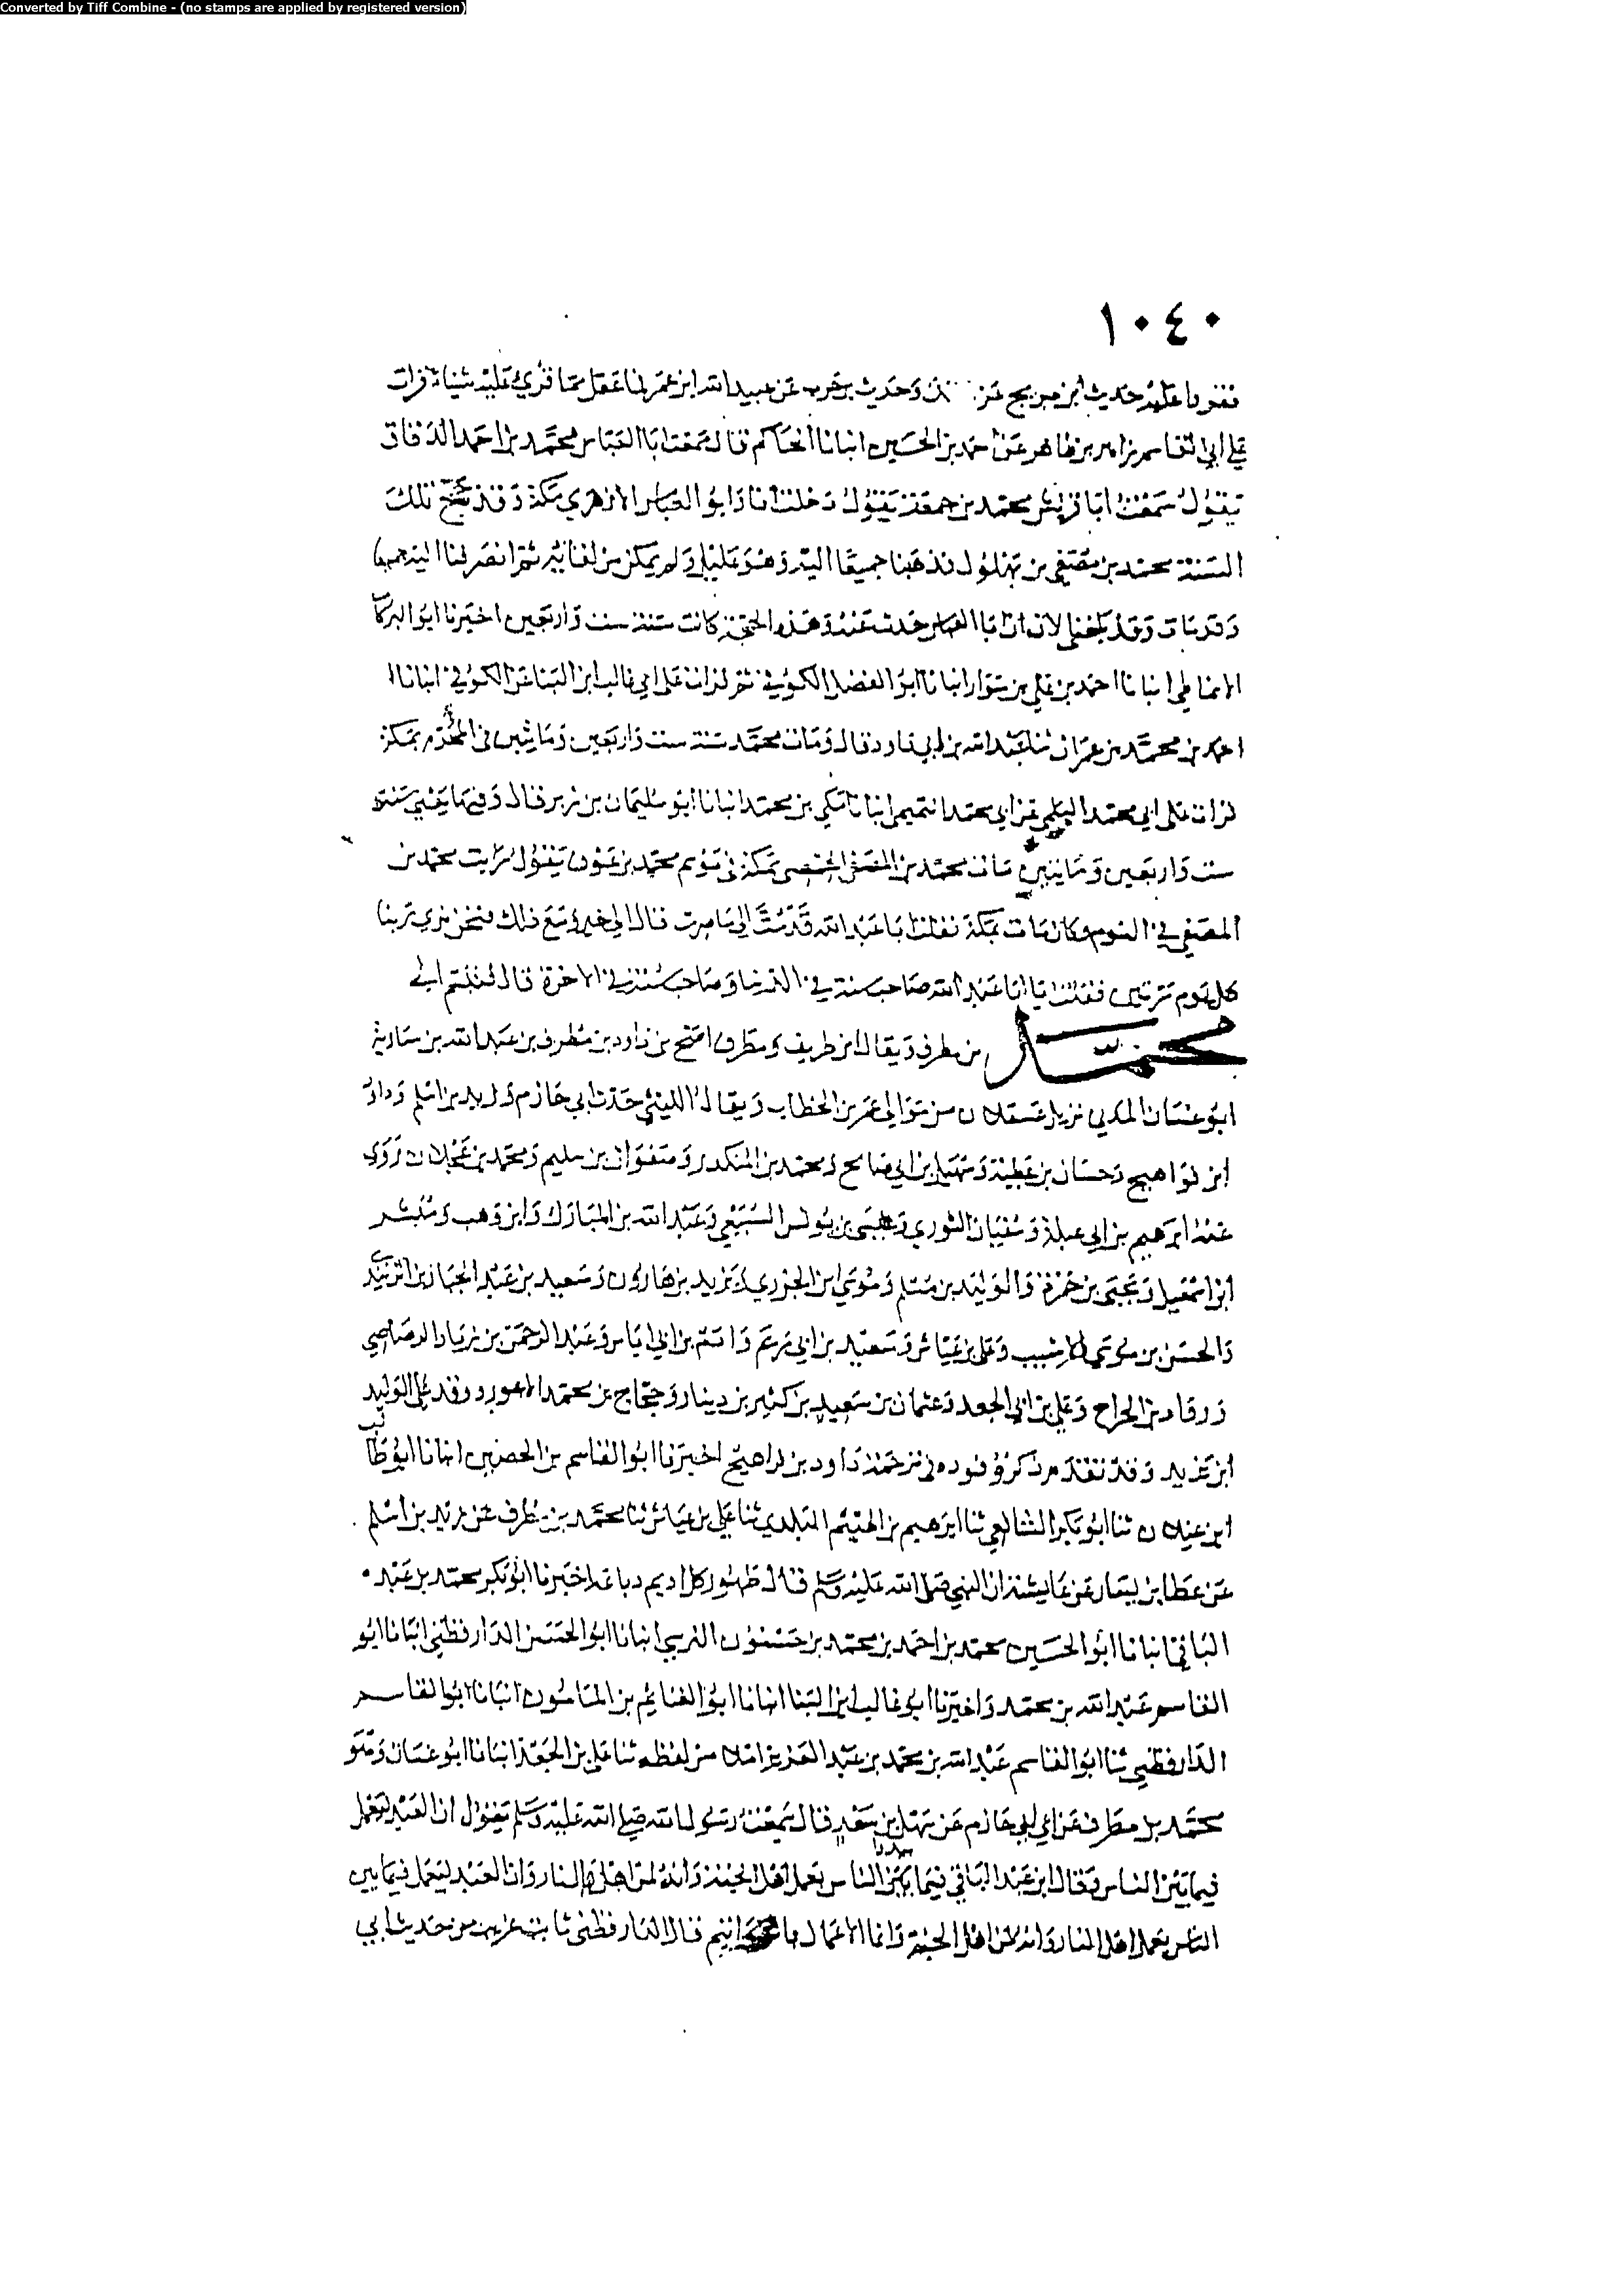 Converted by Tiff Combine - (no stamps are applied by registered version)
١٠٤٠
عليه حديث ابن جريج عن وحديث بن حرب عن عبيد الله ابن عمر مما قرئ عليه شيئا قرات
على ابي القاسم زاهر بن طاهر عن احمد بن الحسين انبانا الحاكم قال سمعت ابا العباس محمد بن احمد الدقاق
يقول سمعت ابا قريش محمد بن جمعة يقول دخلت انا وابو العباس الازهري مكة وقد حج تلك
السنة محمد بن مصفى بن بهلول فذهبنا جميعا اليه وهو عليل ولم يمكن من لقائه ثم انصرفنا اليه جميعا
وقد مات وقد بلغني الان ان ابا العباس حدث عنه وهذه الحجة كانت سنة ست واربعين اخبرنا ابو البركات
الانماطي انبانا احمد بن علي بن سوار انبانا ابو الفضل الكوفي ثم قرات على ابي غالب ابن البنا عن الكوفي انبانا
احمد بن محمد بن عمران ثنا عبد الله بن ابي داود قال ومات محمد سنة ست واربعين ومايتين في المحرم بمكة
قرات على ابي محمد السلمي عن ابي محمد التميمي انبانا مكي بن محمد انبانا ابو سليمان بن زبر قال وفيها يعني سنة
ست واربعين ومايتين مات محمد بن المصفى الحمصي بمكة في موسم محمد بن عون يقول رايت محمد بن
المصفى في النوم وكان مات بمكة فقلت ابا عبد الله قد مت الى ما صرت قال الى خير ومع ذلك فنحن نرى ربنا
كل يوم مرتين فقلت يا ابا عبد الله صاحب سنة في الدنيا وصاحب سنة في الاخرة قال فتبسم الي
محمد بن مطرف ويقال ابن طريف ومطرف اصح بن داود بن مطرف بن عبد الله بن سارية
ابو غسان المدني نزيل عسقلان من موالي عمر بن الخطاب ويقال الليثي حدث ابي حازم وزيد بن اسلم وداود
ابن فراهيج وحسان بن عطية وسهيل بن ابي صالح ومحمد بن المنكدر وصفوان بن سليم ومحمد بن عجلان روى
عنه ابرهيم بن ابي عبلة وسفيان الثوري وعيسى بن يونس السبيعي وعبد الله بن المبارك وابن وهب ومبشر
ابن اسمعيل ويحيى بن حمزة والوليد بن مسلم وموسى ابن الجزري ويزيد بن هارون وسعيد بن عبد الجبار بن الزبيدي
والحسن بن موسى الاشيب وعلي بن عياش وسعيد بن ابي مريم وادم بن ابي اياس وعبد الرحمن بن زياد الرصاصي
ورواد بن الجراح وعلي بن الجعد وعثمان بن سعيد بن كثير بن دينار وحجاج بن محمد الاعور ووفد على الوليد
ابن يزيد وقد تقدم ذكر وفوده في ترجمة داود بن فراهيج اخبرنا ابو القاسم بن الحصين انبانا ابو طالب
ابن غيلان ثنا ابو بكر الشافعي ثنا ابرهيم بن الهيثم البلدي ثنا علي بن عياش ثنا محمد بن مطرف عن زيد بن اسلم
عن عطا بن يسار عن عايشة ان النبي صلى الله عليه وسلم قال طهور كل اديم دباغه اخبرنا ابو بكر محمد بن عبد
الباقي انبانا ابو الحسين محمد بن احمد بن محمد بن حسنون النرسي انبانا ابو الحسن الدارقطني انبانا ابو
القاسم عبد الله بن محمد واخبرنا ابو غالب ابن البنا انبانا ابو الغنايم بن المامون انبانا ابو القاسم
الدارقطني ثنا ابو القاسم عبد الله بن محمد بن عبد العزيز املا من لفظه ثنا علي بن الجعد انبانا ابو غسان وهو
محمد بن مطرف عن ابي حازم عن سهل بن سعد قال سمعت رسول الله صلى الله عليه وسلم يقول ان العبد ليعمل
فيما بين الناس وقال ابن عبد الباقي فيما يرى الناس بعمل اهل الجنة وانه لمن اهل النار وان العبد ليعمل فيما بين
الناس بعمل اهل النار وانه لمن اهل الجنة وانما الاعمال بالخواتيم قال الدارقطني ثابت غريب من حديث ابي